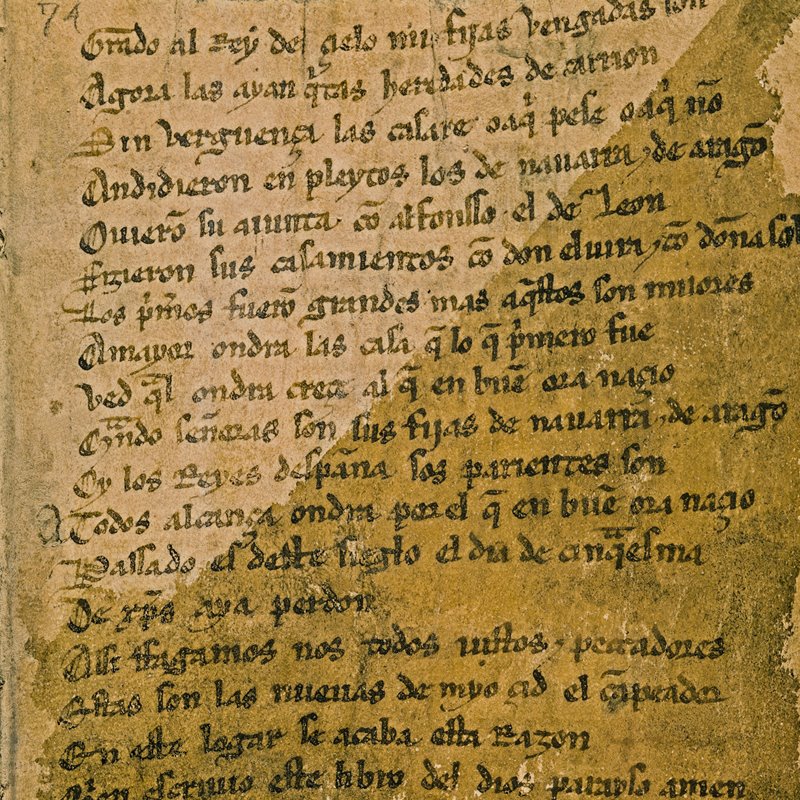 74
Grado al Rey del çielo mis fijas vengadas son
Agora las ayan q̃tas heredades de carrion
Sin verguença las casare oaq̃ pese oaq̃ nõ
Andidieron en pleytos los de nauarra ⁊ de aragõ
Ouierõ su aiunta cõ alfonsso el de Leon
Fizieron sus casamientos cõ don eluira ⁊ cõ doña sol
Los p̃meros fuerõ grandes mas aq̃stos son miiores
A mayor ondra las casa q̃ lo q̃ p̃mero fue
Ved q̃l ondra creçe al q̃ en buẽ ora naçio
Quãdo señoras son sus fijas de nauarra ⁊ de aragõ
Oy los Reyes despaña sos parientes son
A Todos alcança ondra por el q̃ en buẽ ora naçio
Passado es deste sieglo el dia de cinq̃esma
De xp̃s aya perdon
Assi ffagamos nos todos iustos ⁊ peccadores
Estas son las nueuas de myo çid el cãpeador
En este logar se acaba esta Razon
Quien escriuio este libro del dios parayso amen